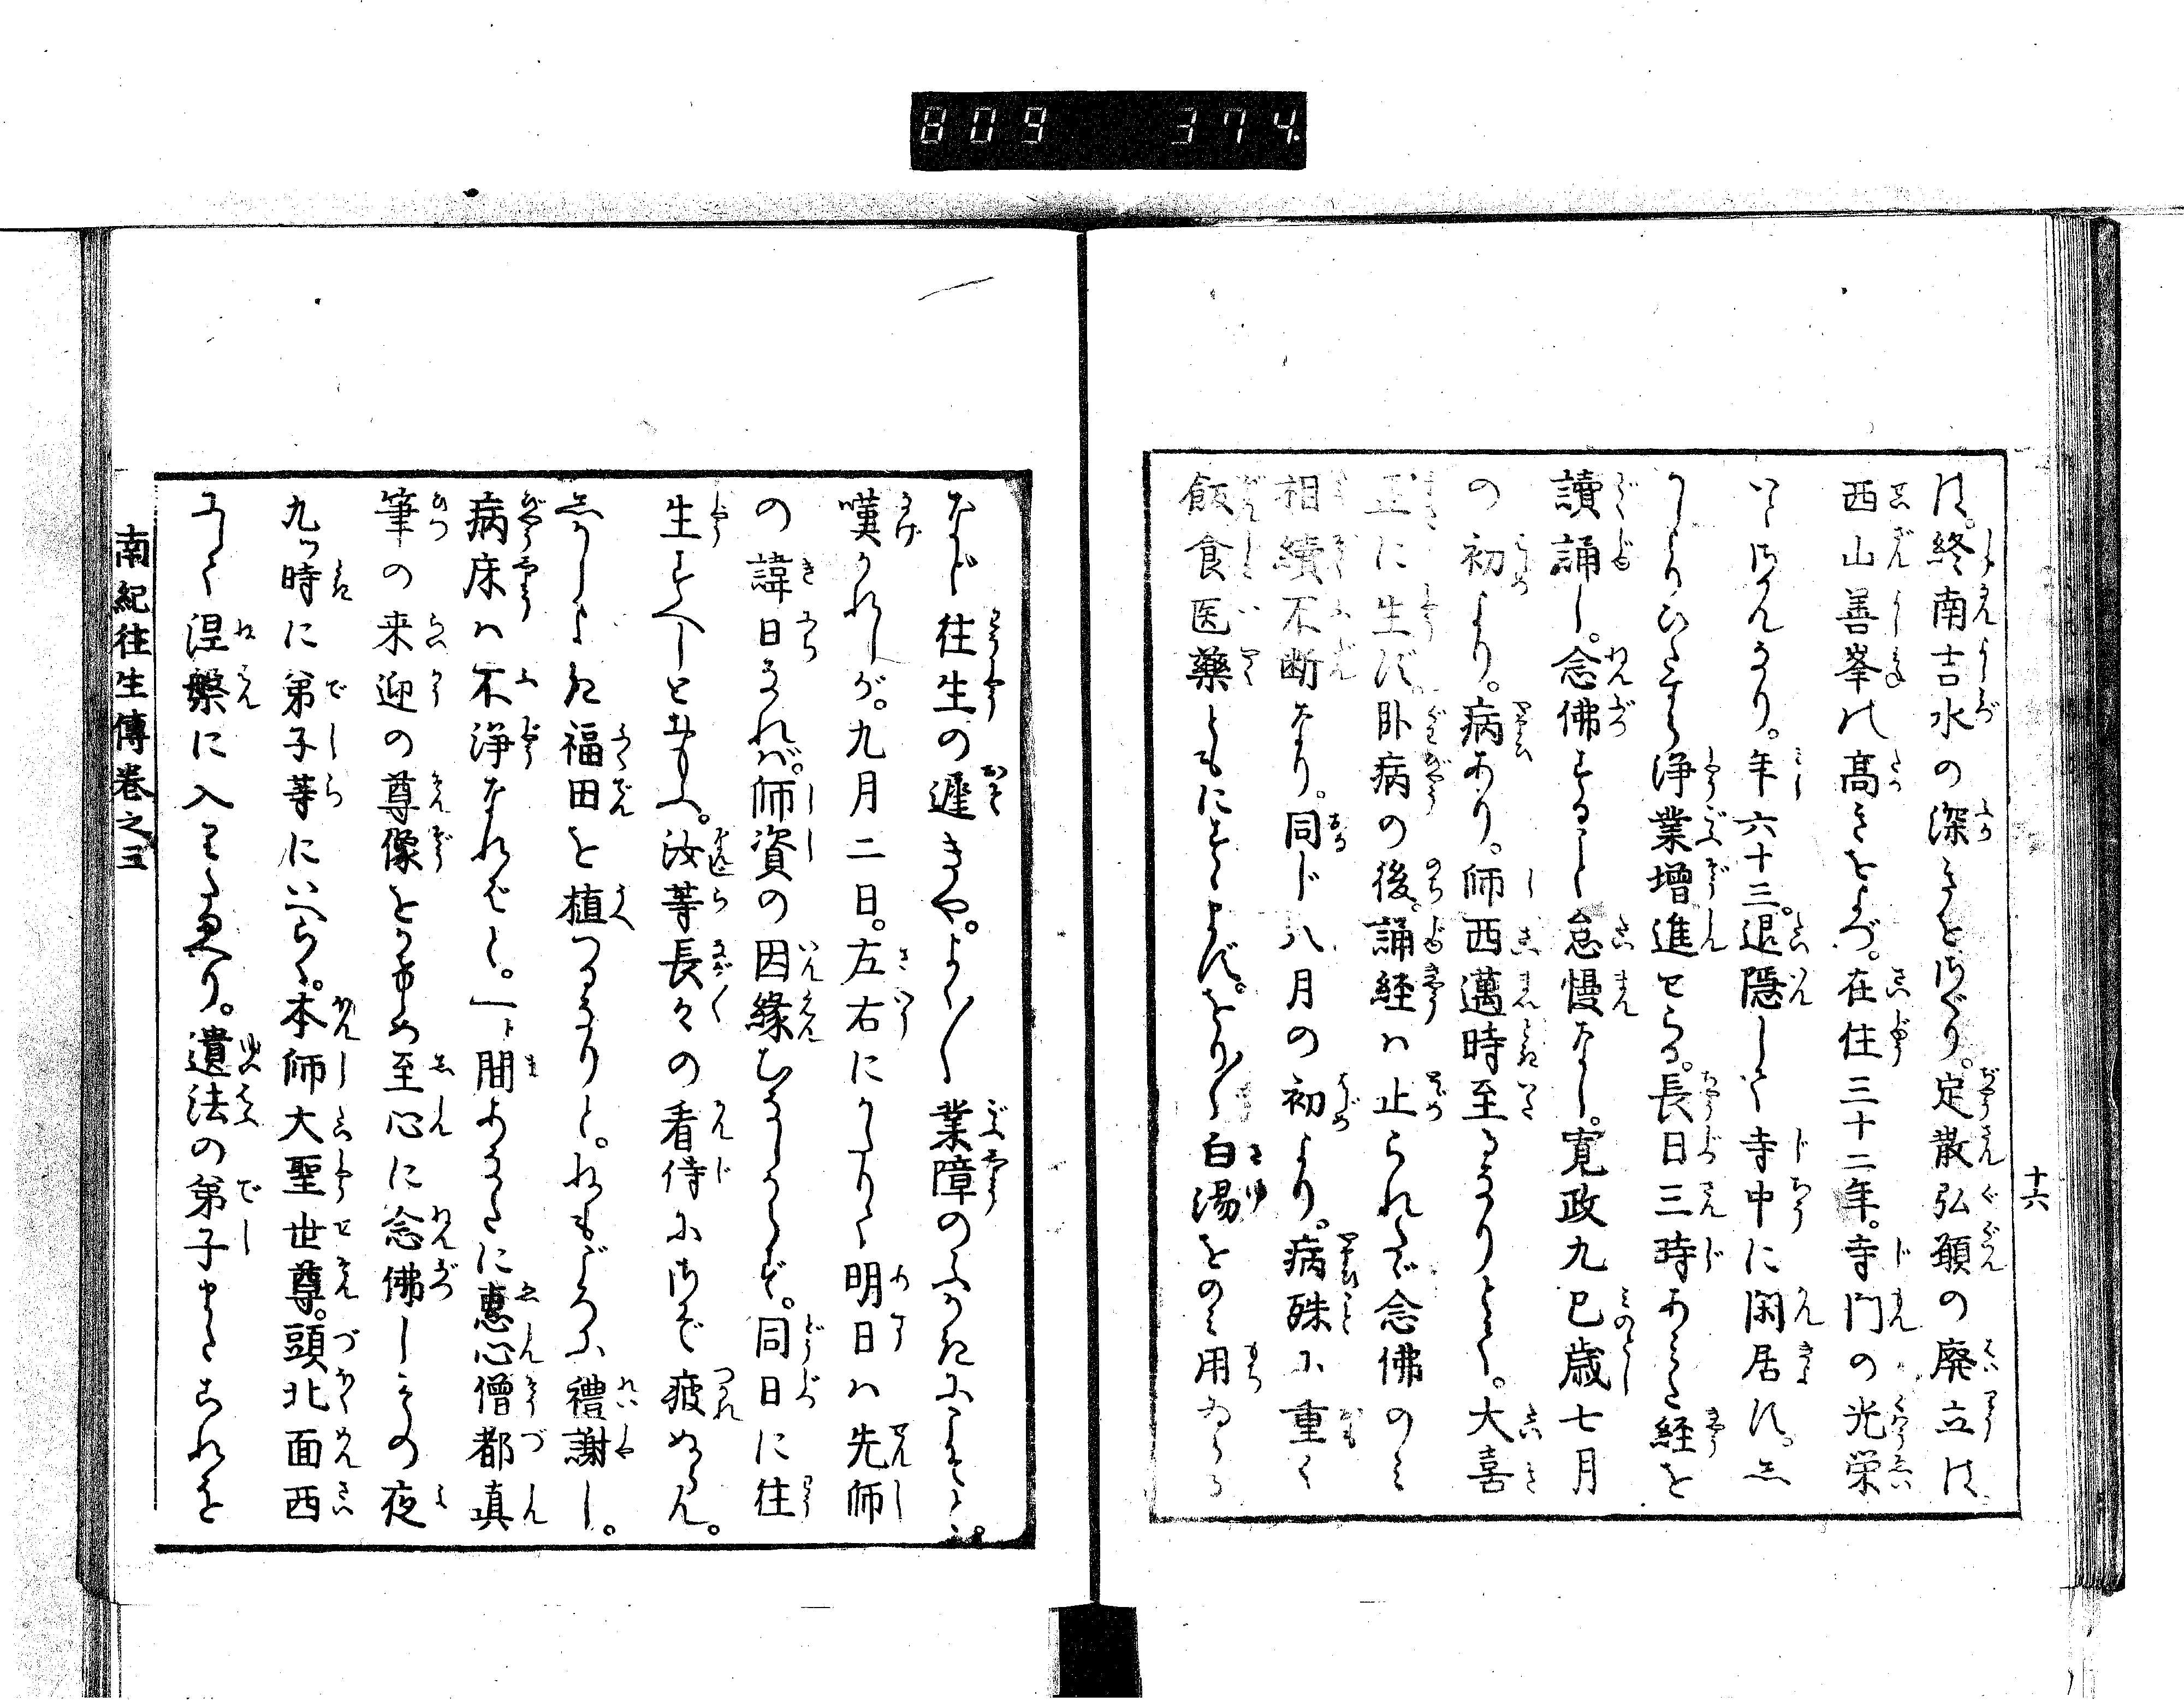 809 374
十六
は。終南吉水の深きをさぐり。定散弘願の廃立は
西山善峯の高きをよづ。在住三十二年。寺門の光栄
いはんかたなり。年六十三。退隠して寺中に閑居す。し
かしよりひたすら浄業増進せらる。長日三時あみだ経を
讀誦し。念佛すること怠慢なし。寛政九巳歳七月
の初より。病あり。師西邁時至るなりとて。大喜
正に生ず。卧病の後。誦経は止られたゞ念佛のミ
相續不断なり。同じ八月の初より。病殊に重く
飯食医藥ともにすゝまず。をり〱白湯をのミ用ゐら
なんど往生の遅きや。よく〱業障のふかきにこそとて。
嘆かれしが。九月二日。左右にかたりて明日は先師
の諱日なれバ。師資の因縁むなしからず。同日に往
生すべしとおもふ。汝等長々の看侍にさぞ疲めらん。
しかしよき福田を植つるなりと。ねもごろに禮謝し。
病床は不浄なればとて。一ト間あなたに恵心僧都真
筆の来迎の尊像をかけしめ至心に念佛しその夜
九ッ時に弟子等にいへらく。本師大聖世尊。頭北面西
にして涅槃に入玉へり。遺法の弟子またこれを
南紀往生傳巻之三